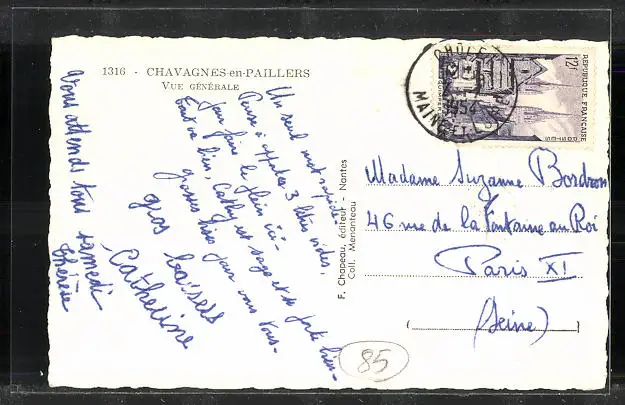 1316 - CHAVAGNES-en-PAILLERS
VUE GÉNÉRALE
Un seul mot rapide.
Pense à apporter 3 litres vides,
pour faire le plein ici.
Tout va bien. Cathy est sage et se porte bien.
grosses bises pour vous tous.
gros baisers
Catherine
Vous attends tous samedi
Thérèse
F. Chapeau, éditeur - Nantes
Coll. Menanteau
CHOLET
1954
MAINE-ET-
RÉPUBLIQUE FRANÇAISE
12F
POSTES
QUIMPER
Madame Suzanne Bordron
46 rue de la Fontaine au Roi
Paris XI
(Seine)
85